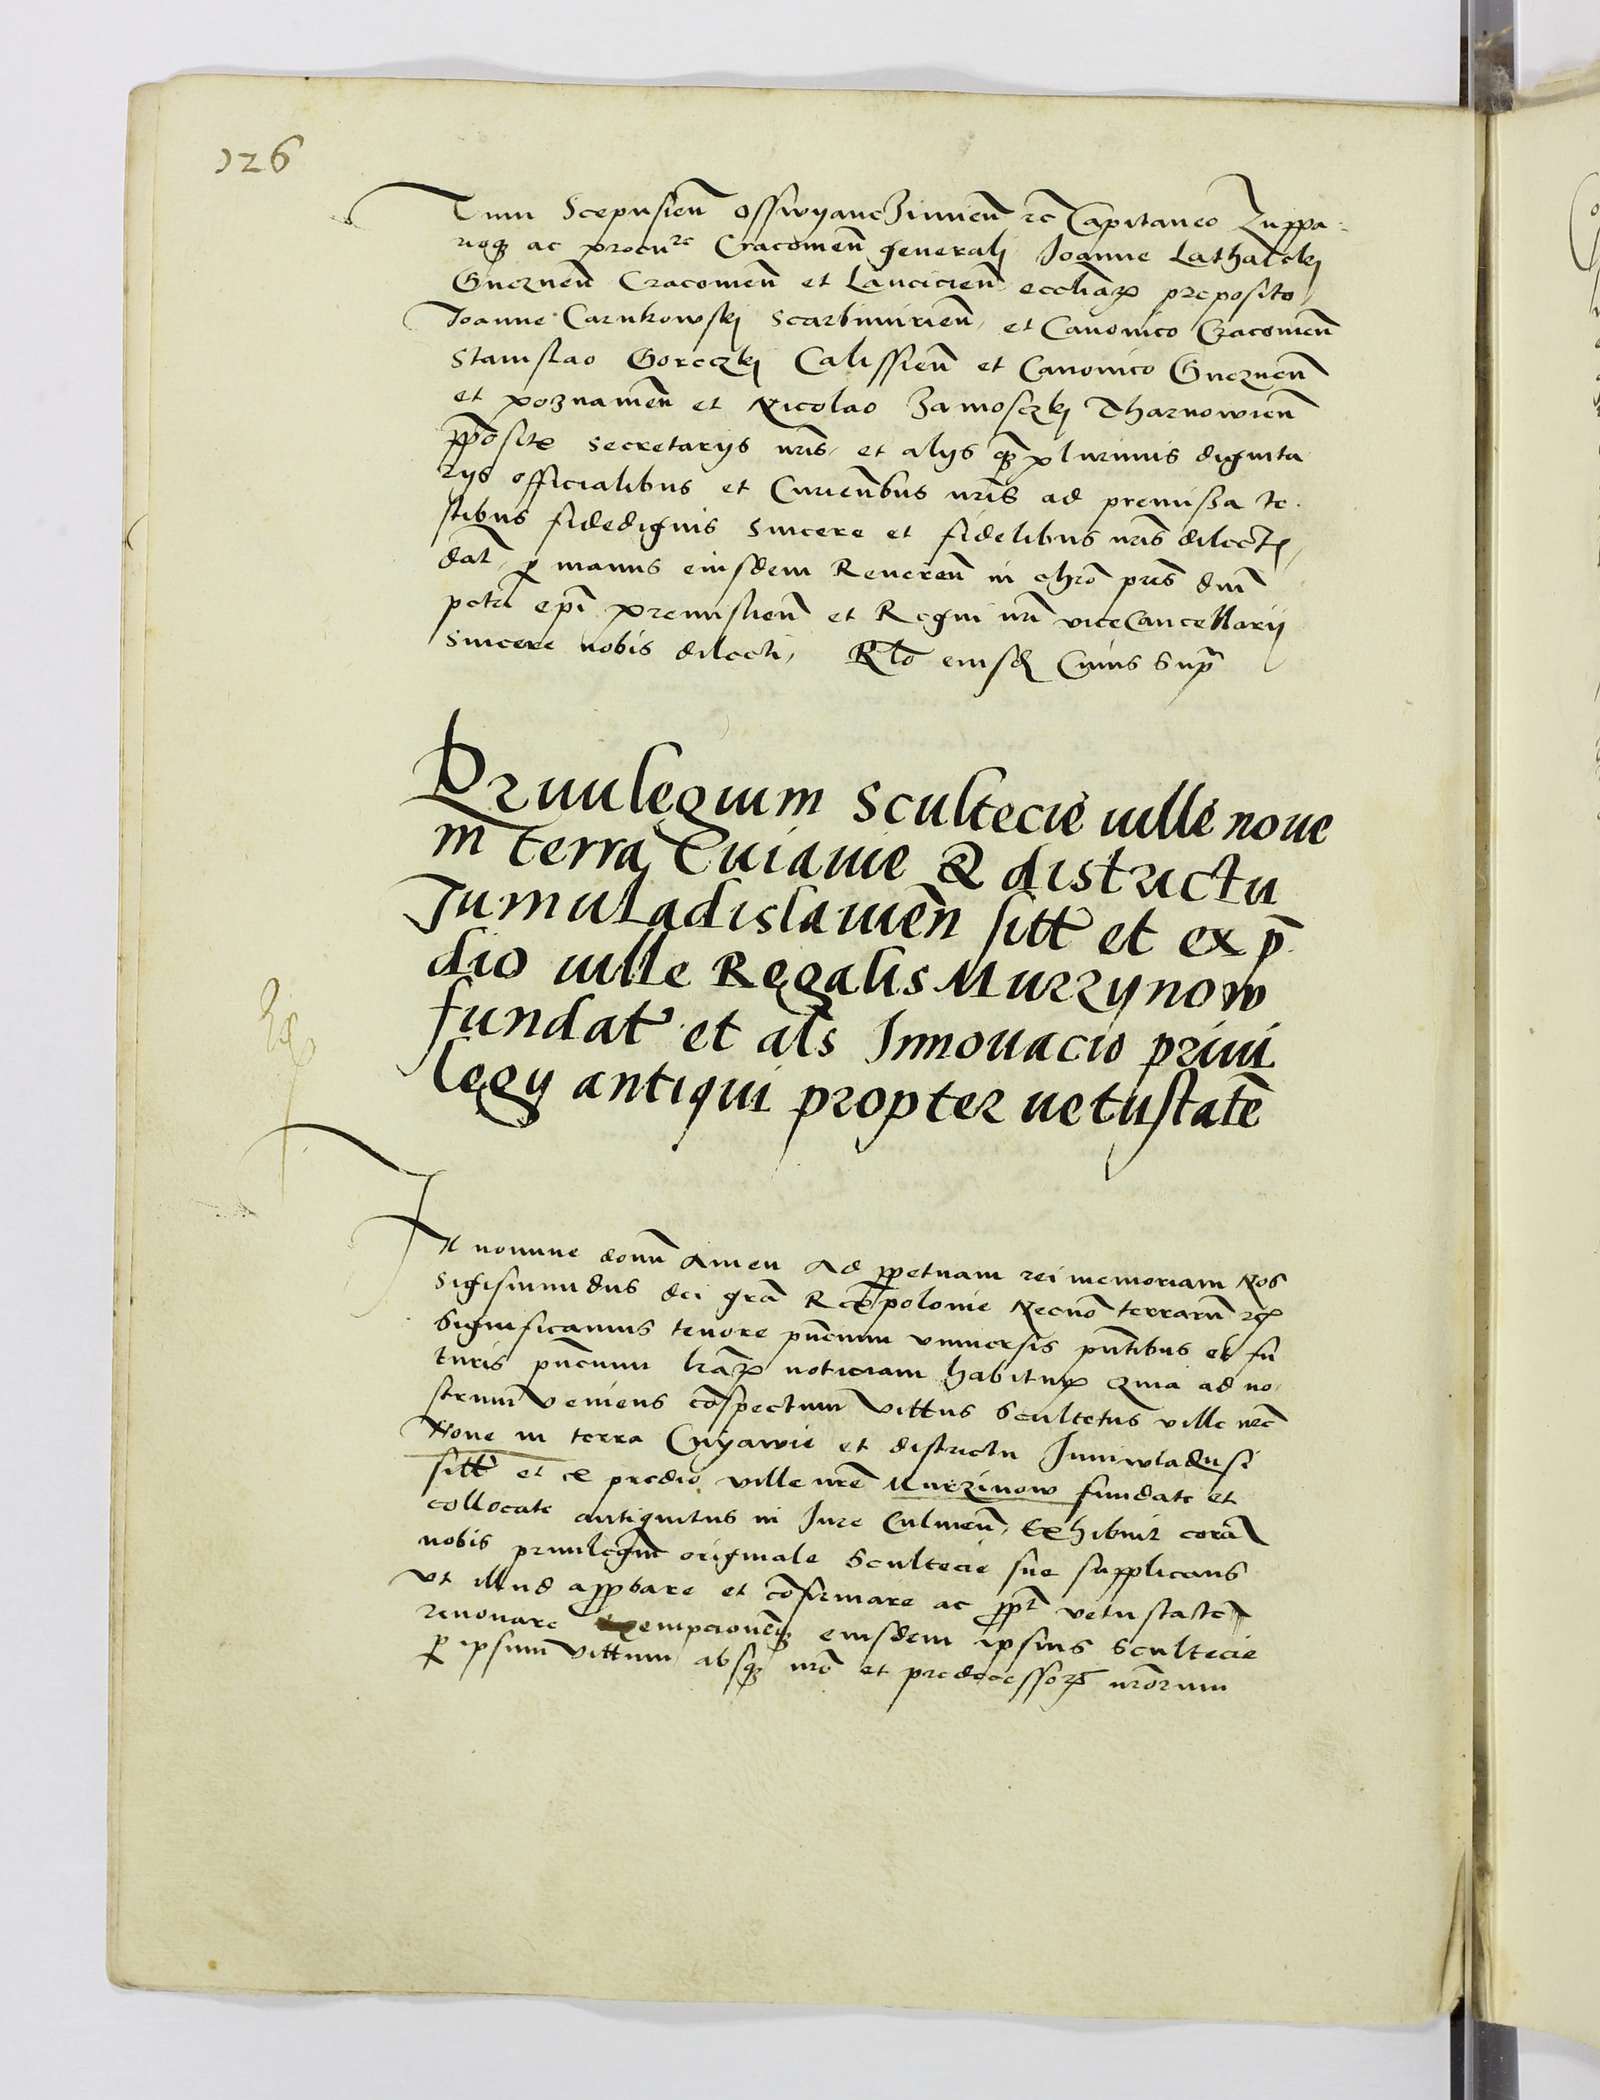 126
Tum Scepusien̄ Osswyanczimien̄ ec̄ Capitaneo Zuppa-
rioqȝ ac procure Cracouien̄ generalj Joanne Lathalckj
Gneznen̄ Cracouien̄ et Lancicien̄ eccliaꝝ preposito
Joanne Carnkowskj Scarbimirien̄ et Canonico Cracouien̄
Stanislao Goreczkj Calissien̄ et Canonico Gneznen̄
et poznanien̄ et Nicolao Zamosczkj Tharnowien̄
ꝓposit secretarijs nr̄is et alijs qȝ plurimis dignita
rijs officialibus et Curien̄bus nr̄is ad premissa te-
stibus fidedignis sincere et fidelibus nr̄is dilect
dat ꝑ manus eiusdem Reueren̄ in chr̄o pr̄is dn̄i
petri ep̄i premislien̄ et Regni nr̄i viceCancellarij
sincere nobis dilecti Rl̄o eiusd Cuius sup̄
Priuilegium scultecie uille noue
in terra Cuiauie & districtu
Juniuladislauien̄ sitt et ex p̄
dio uille Regalis Murzynow
fundat et al̄s Innouacio priui
legij antiqui propter uetustatē
In nomine domī Amen Ad ꝑpetuam rei memoriam Nos
Sigismundus dei gr̄a Rex polonie Necnō terrarū ec̄
Significamus tenore pn̄cium vniuersis pn̄tibus et fu
turis pn̄cium lr̄aꝝ noticiam habituꝝ Quia ad no-
strum veniens cōspectum vittus Scultetus ville nr̄e
Noue in terra Cuyawie et districtu Juniwladusi
sitt et ex predio ville nr̄e Murzinow fundate et
collocate antiquitus in Jure Culmen̄ Exhibuit corā
nobis priuilegiū originale Scultecie sue supplicans
vt illud approbare et cōfirmare ac ꝓpt vetustatē
renouare Exempcionēqȝ eiusdem ipsius Scultecie
ꝑ ipsum vittum absqȝ nr̄o et predecessoꝝ nr̄orum